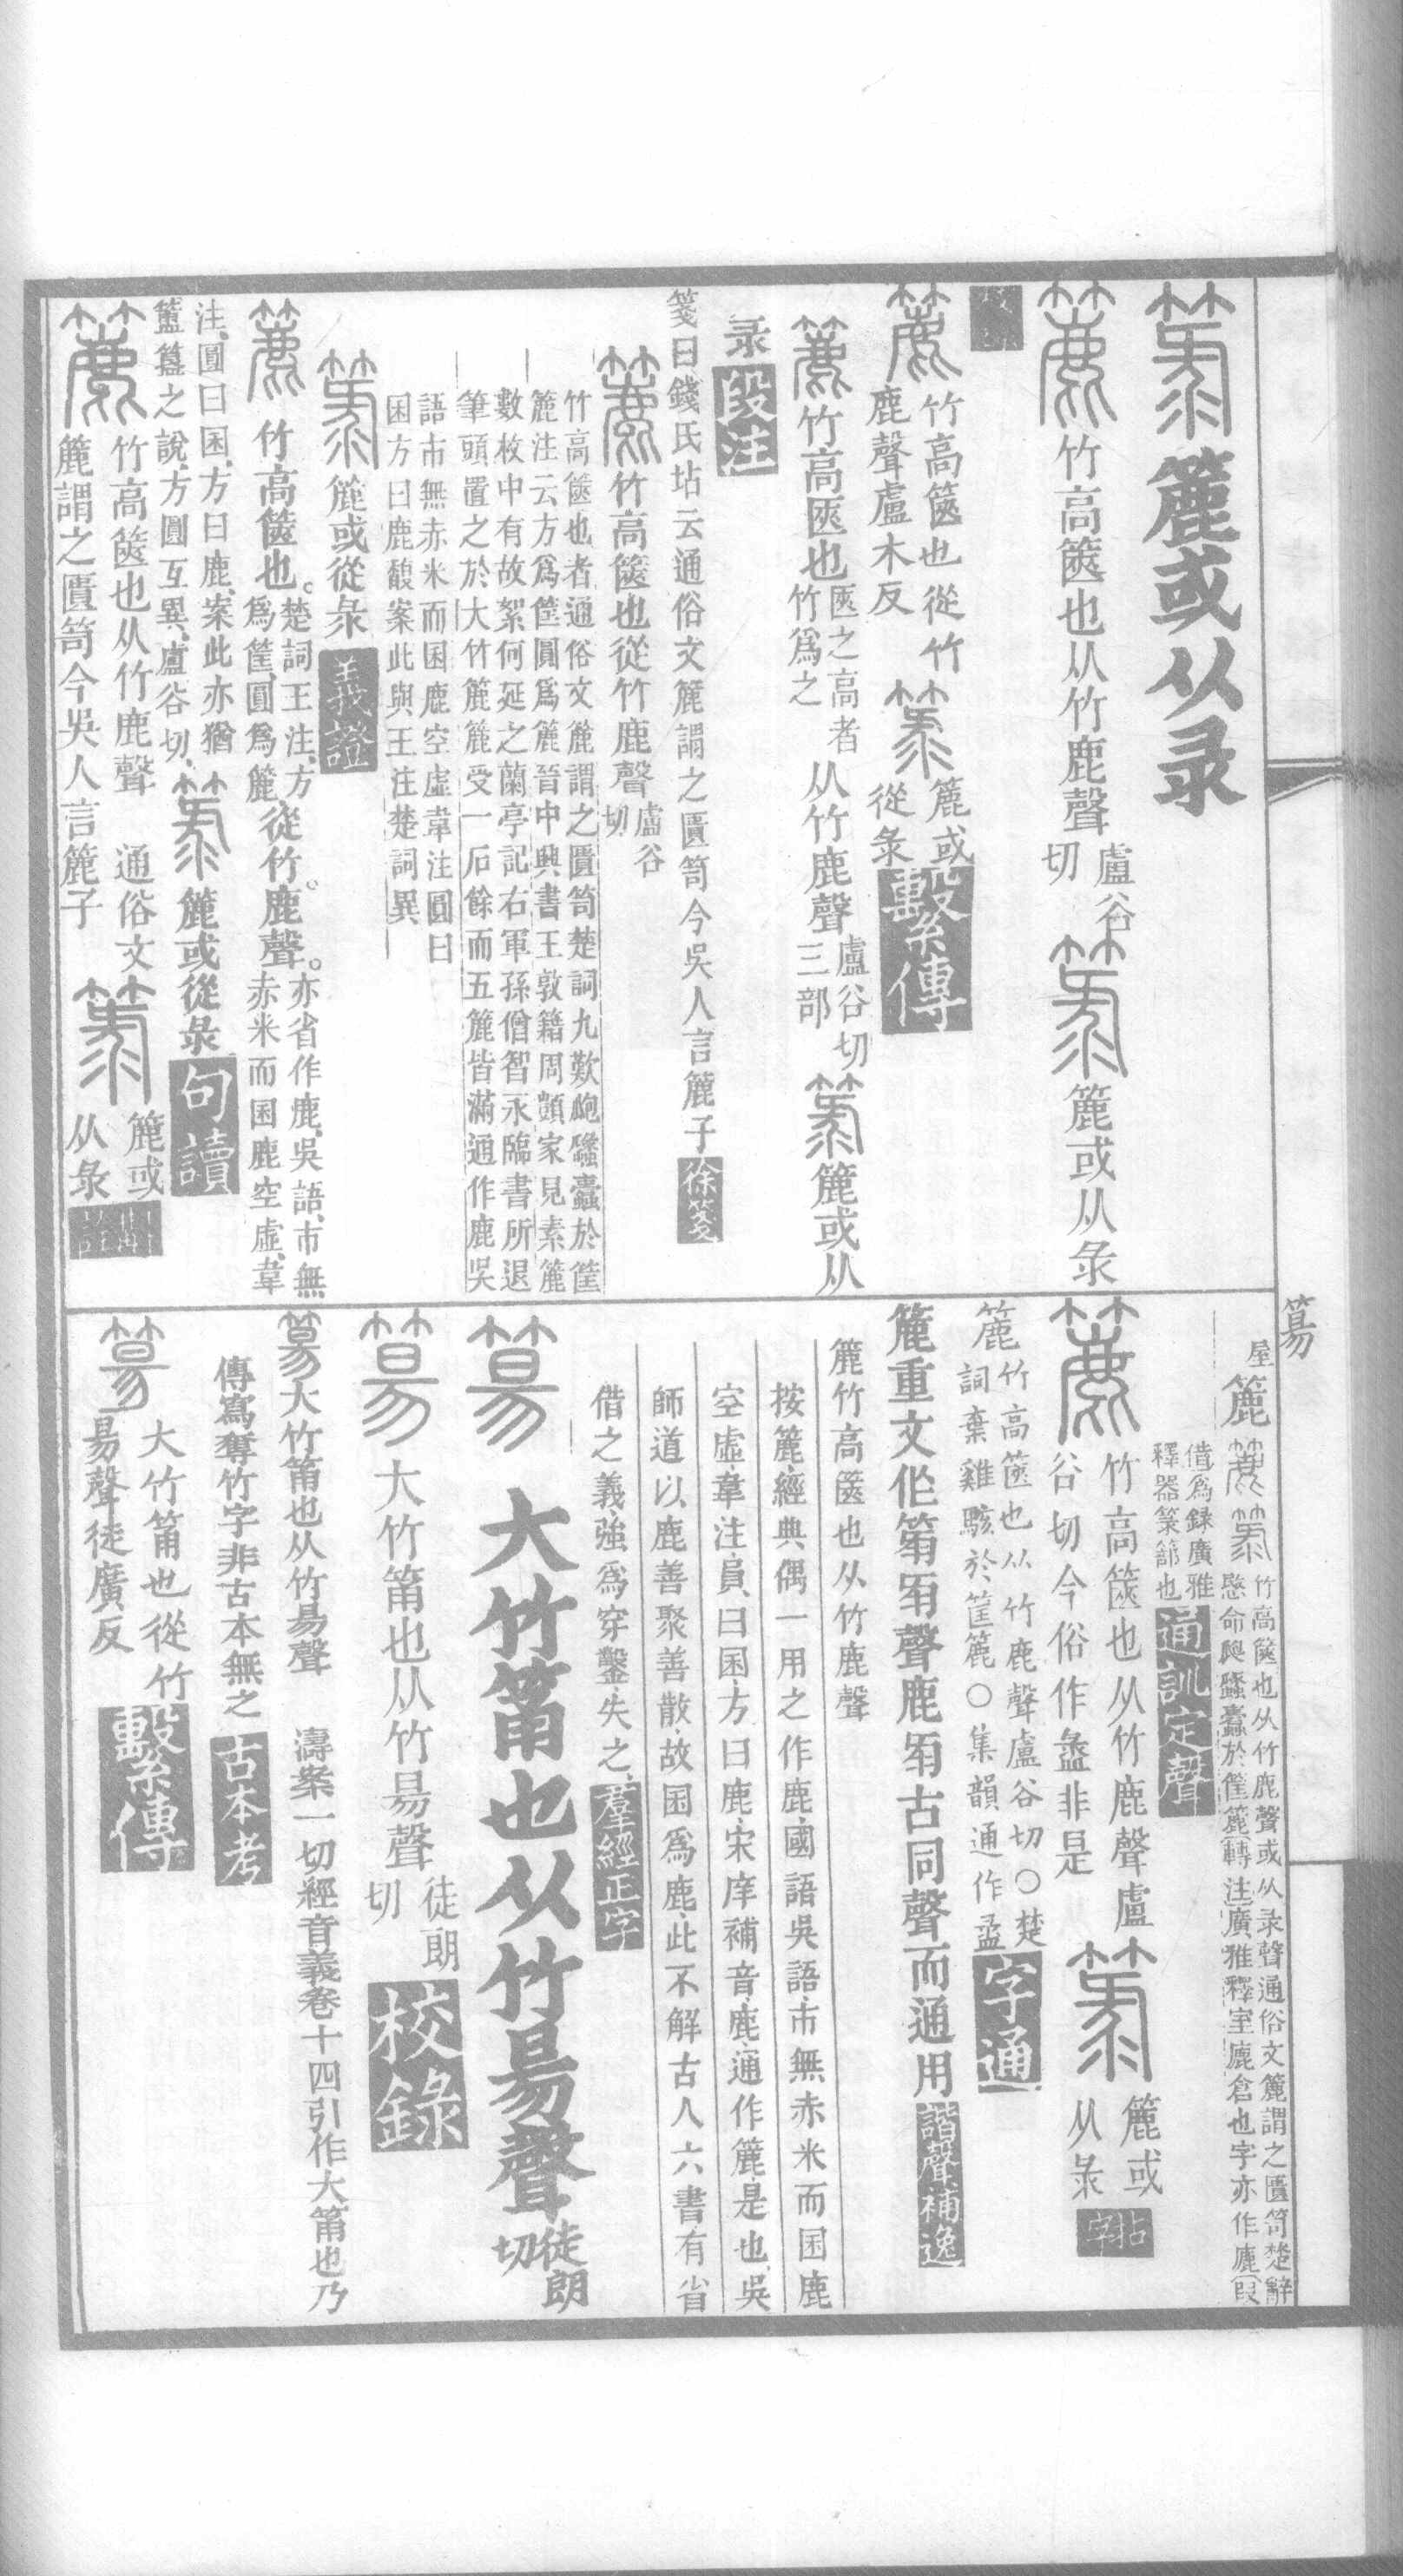 簏或从录
竹高篋也从竹鹿聲盧谷切
簏或从彔
校錄
竹高篋也從竹鹿聲盧木反
簏或從彔
繫傳
竹高匧也匧之高者竹爲之从竹鹿聲盧谷切三部
簏或从
录
段注
箋曰錢氏坫云通俗文簏謂之匱笥今吳人言簏子
徐箋
竹高篋也從竹鹿聲盧谷切
竹高篋也者通俗文簏謂之匱笥楚詞九歎瓟蠡蠹於筐
簏注云方爲筐圓爲簏晉中興書王敦籍周顗家見素簏
數枚中有故絮何延之蘭亭記右軍孫僧智永臨書所退
筆頭置之於大竹簏簏受一石餘而五簏皆滿通作鹿吳
語市無赤米而囷鹿空虛韋注圓曰
囷方曰鹿馥案此與王注楚詞異
簏或從彔
義證
竹高篋也。楚詞王注、方爲筐、圓爲簏從竹。鹿聲。亦省作鹿、吳語、市無赤米而囷鹿空虛、韋
注、圓曰囷、方曰鹿、案此亦猶
簠簋之說、方圓互異、盧谷切、
簏或從彔
句讀
竹高篋也从竹鹿聲 通俗文
簏謂之匱笥今吳人言簏子
簏或从彔
籀
屋簏
竹高篋也从竹鹿聲或从录聲通俗文簏謂之匱笥楚辭
愍命與蠡蠹於筐簏轉注廣雅釋室廘倉也字亦作廘叚
借爲錄廣雅
釋器箓䈏也
通訓定聲
竹高篋也从竹鹿聲盧
谷切今俗作盝非是
簏或从彔
拈字
簏竹高篋也从竹鹿聲盧谷切〇楚
詞棄雞駭於筐簏〇集韻通作盝
字通
簏重文作箓彔聲鹿彔古同聲而通用
諧聲補逸
簏竹高篋也从竹鹿聲
按簏、經典偶一用之作鹿、國語吳語、市無赤米而囷鹿
空虛、韋注、員曰囷、方曰鹿、宋庠補音、鹿通作簏、是也、吳
師道以鹿善聚善散、故囷爲鹿、此不解古人六書有省
借之義、強爲穿鑿、失之、
羣經正字
大竹筩也从竹昜聲徒朗切
大竹筩也从竹昜聲徒朗切
校錄
簜大竹筩也从竹昜聲 濤案一切經音義卷十四引作大筩也乃
傳寫奪竹字非古本無之
古本考
大竹筩也從竹
昜聲徒廣反
繫傳